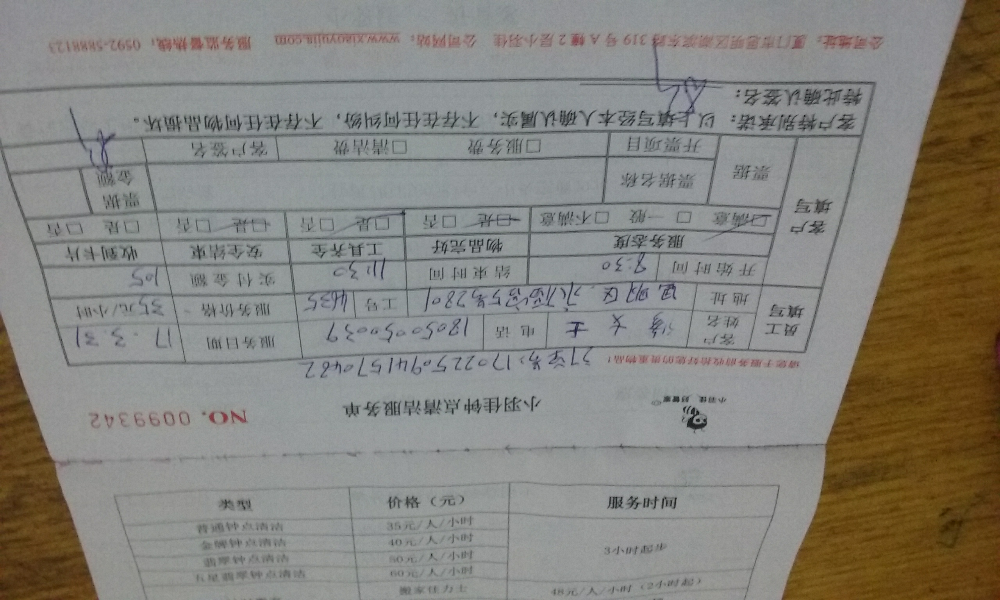 小羽佳钟点清洁服务单
NO. 0099342
小羽佳 好管家
订单号:1702250941570482
请您于服务前收拾好您的贵重物品!
员工填写 客户姓名 女士 电话 18050050039 服务日期 17.3.31
地址 思明区 号2801 工号 4635 服务价格 35元/小时
开始时间 8:30 结束时间 11:30 实付金额 105
客户填写 服务态度 物品完好 工具齐全 安全结束 收到卡片
☑满意 □一般 □不满意 ☑是 □否 ☑是 □否 ☑是 □否 □是 □否
票据 票据名称 票据金额
开票项目 □服务费 □清洁费 客户签名
客户特别承诺:以上填写经本人确认属实,不存在任何纠纷,不存在任何物品损坏。
特此确认签名:
公司地址:厦门市思明区湖滨东路319号A幢2层小羽佳 公司网站:www.xiaoyujia.com 服务监督热线:0592-5888123
类型 价格(元) 服务时间
普通钟点清洁 35元/人/小时 3小时起步
金牌钟点清洁 40元/人/小时
翡翠钟点清洁 50元/人/小时
五星翡翠钟点清洁 60元/人/小时
搬家佳力士 48元/人/小时(2小时起)